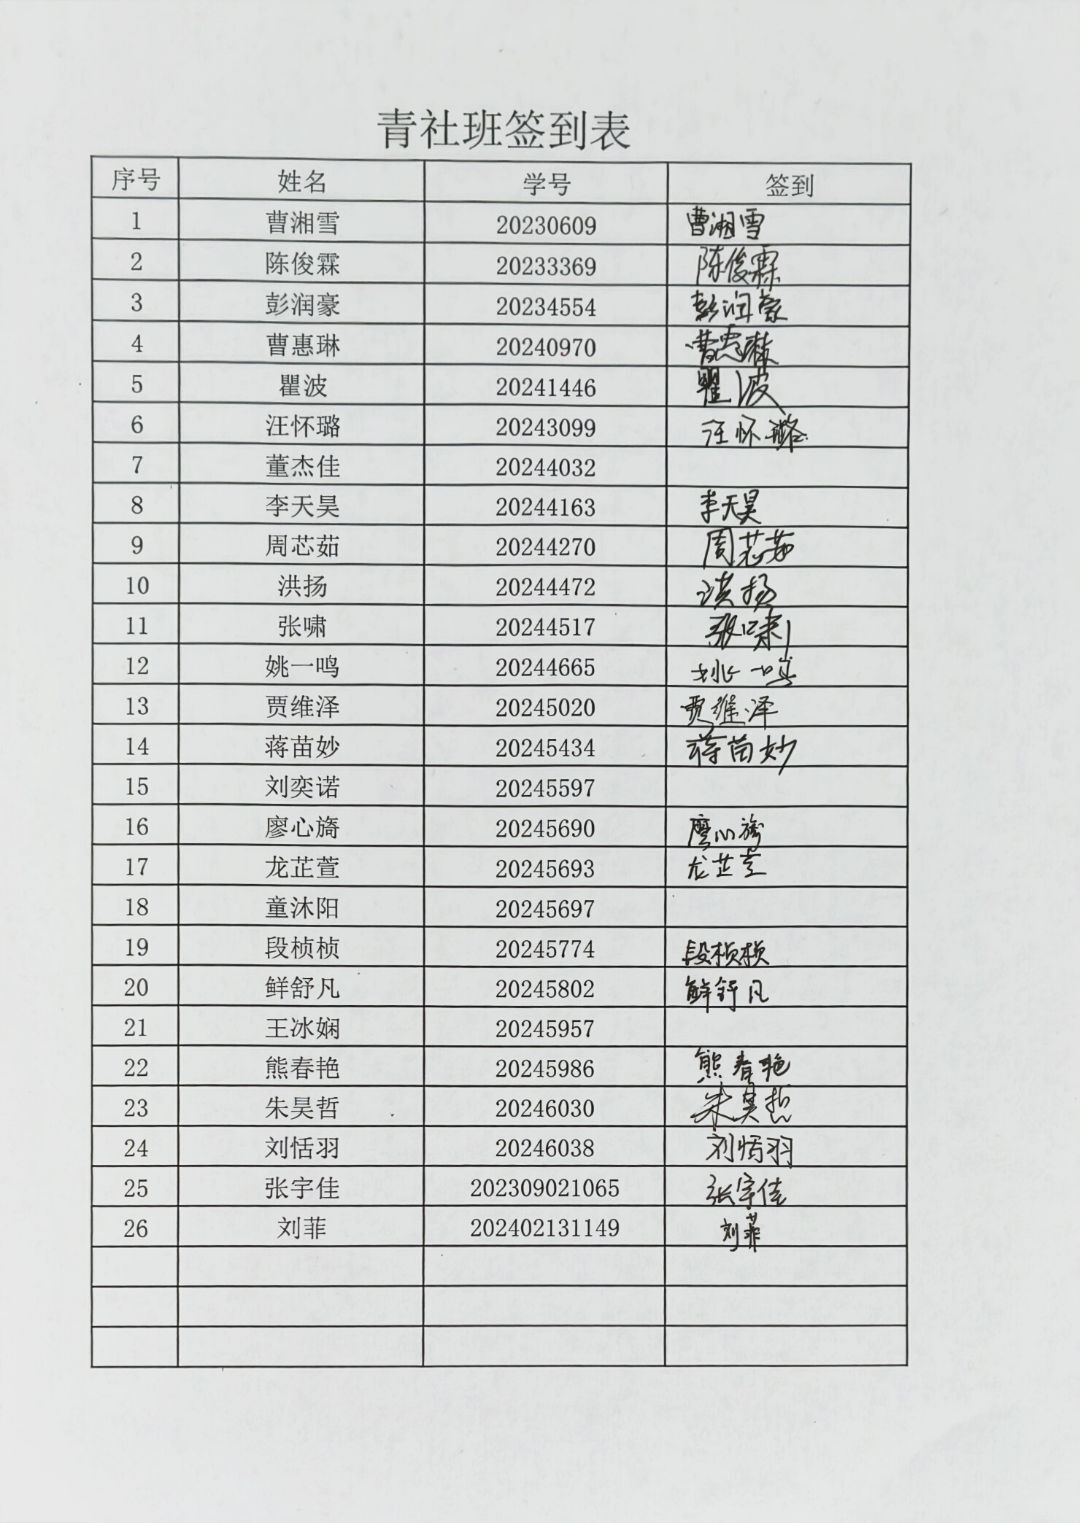 青社班签到表
序号 姓名 学号 签到
1 曹湘雪 20230609 曹湘雪
2 陈俊霖 20233369 陈俊霖
3 彭润豪 20234554 彭润豪
4 曹惠琳 20240970 曹惠琳
5 瞿波 20241446 瞿波
6 汪怀璐 20243099 汪怀璐
7 董杰佳 20244032
8 李天昊 20244163 李天昊
9 周芯茹 20244270 周芯茹
10 洪扬 20244472 洪扬
11 张啸 20244517 张啸
12 姚一鸣 20244665 姚一鸣
13 贾维泽 20245020 贾维泽
14 蒋苗妙 20245434 蒋苗妙
15 刘奕诺 20245597
16 廖心旖 20245690 廖心旖
17 龙芷萱 20245693 龙芷萱
18 童沐阳 20245697
19 段桢桢 20245774 段桢桢
20 鲜舒凡 20245802 鲜舒凡
21 王冰娴 20245957
22 熊春艳 20245986 熊春艳
23 朱昊哲 20246030 朱昊哲
24 刘恬羽 20246038 刘恬羽
25 张宇佳 202309021065 张宇佳
26 刘菲 202402131149 刘菲